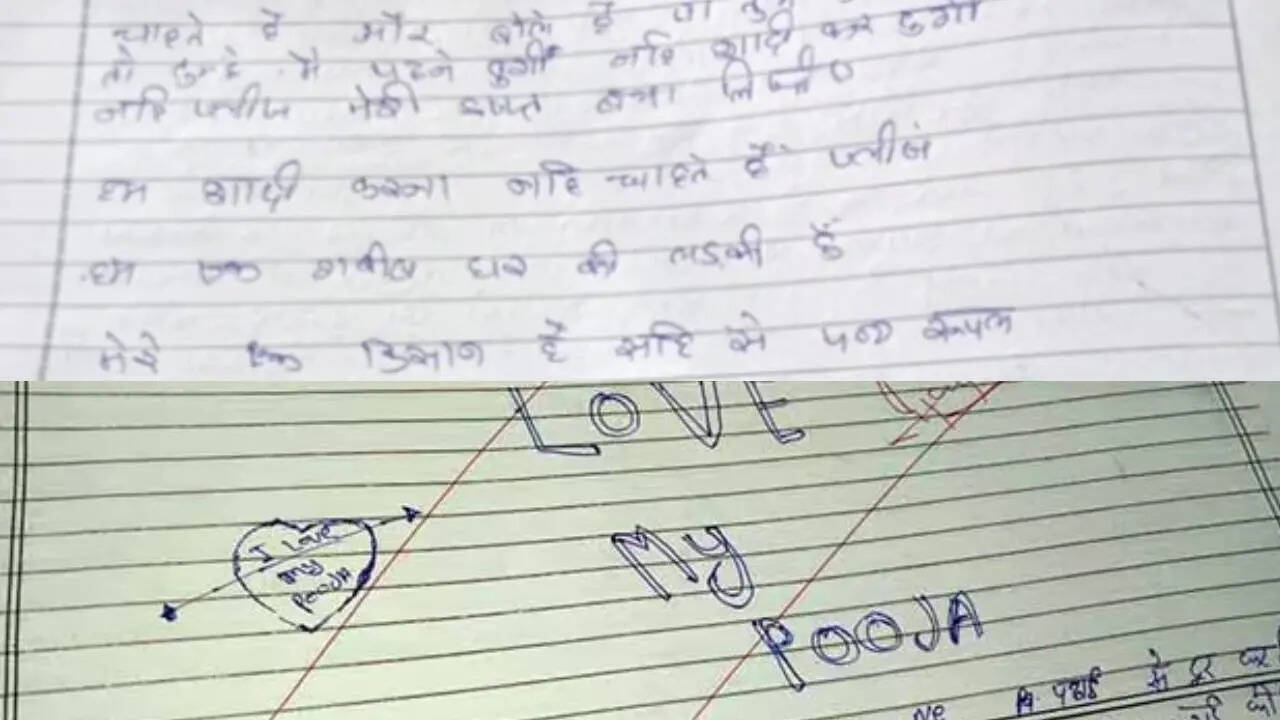 चाहते है और बोले है
तो तुम्हे मै पढने दुगाँ नहि शादी कर दुगा
नहि प्लीज मेरी इज्जत बचा लिजीए
हम शादी करना नहि चाहते हैं प्लीजं
हम एक गरीब घर की लडकी हैं
मेरे एक किसान हैं सहि से
LOVE
I Love
my
POOJA
My
POOJA
पढाई से दूर कर
Ne